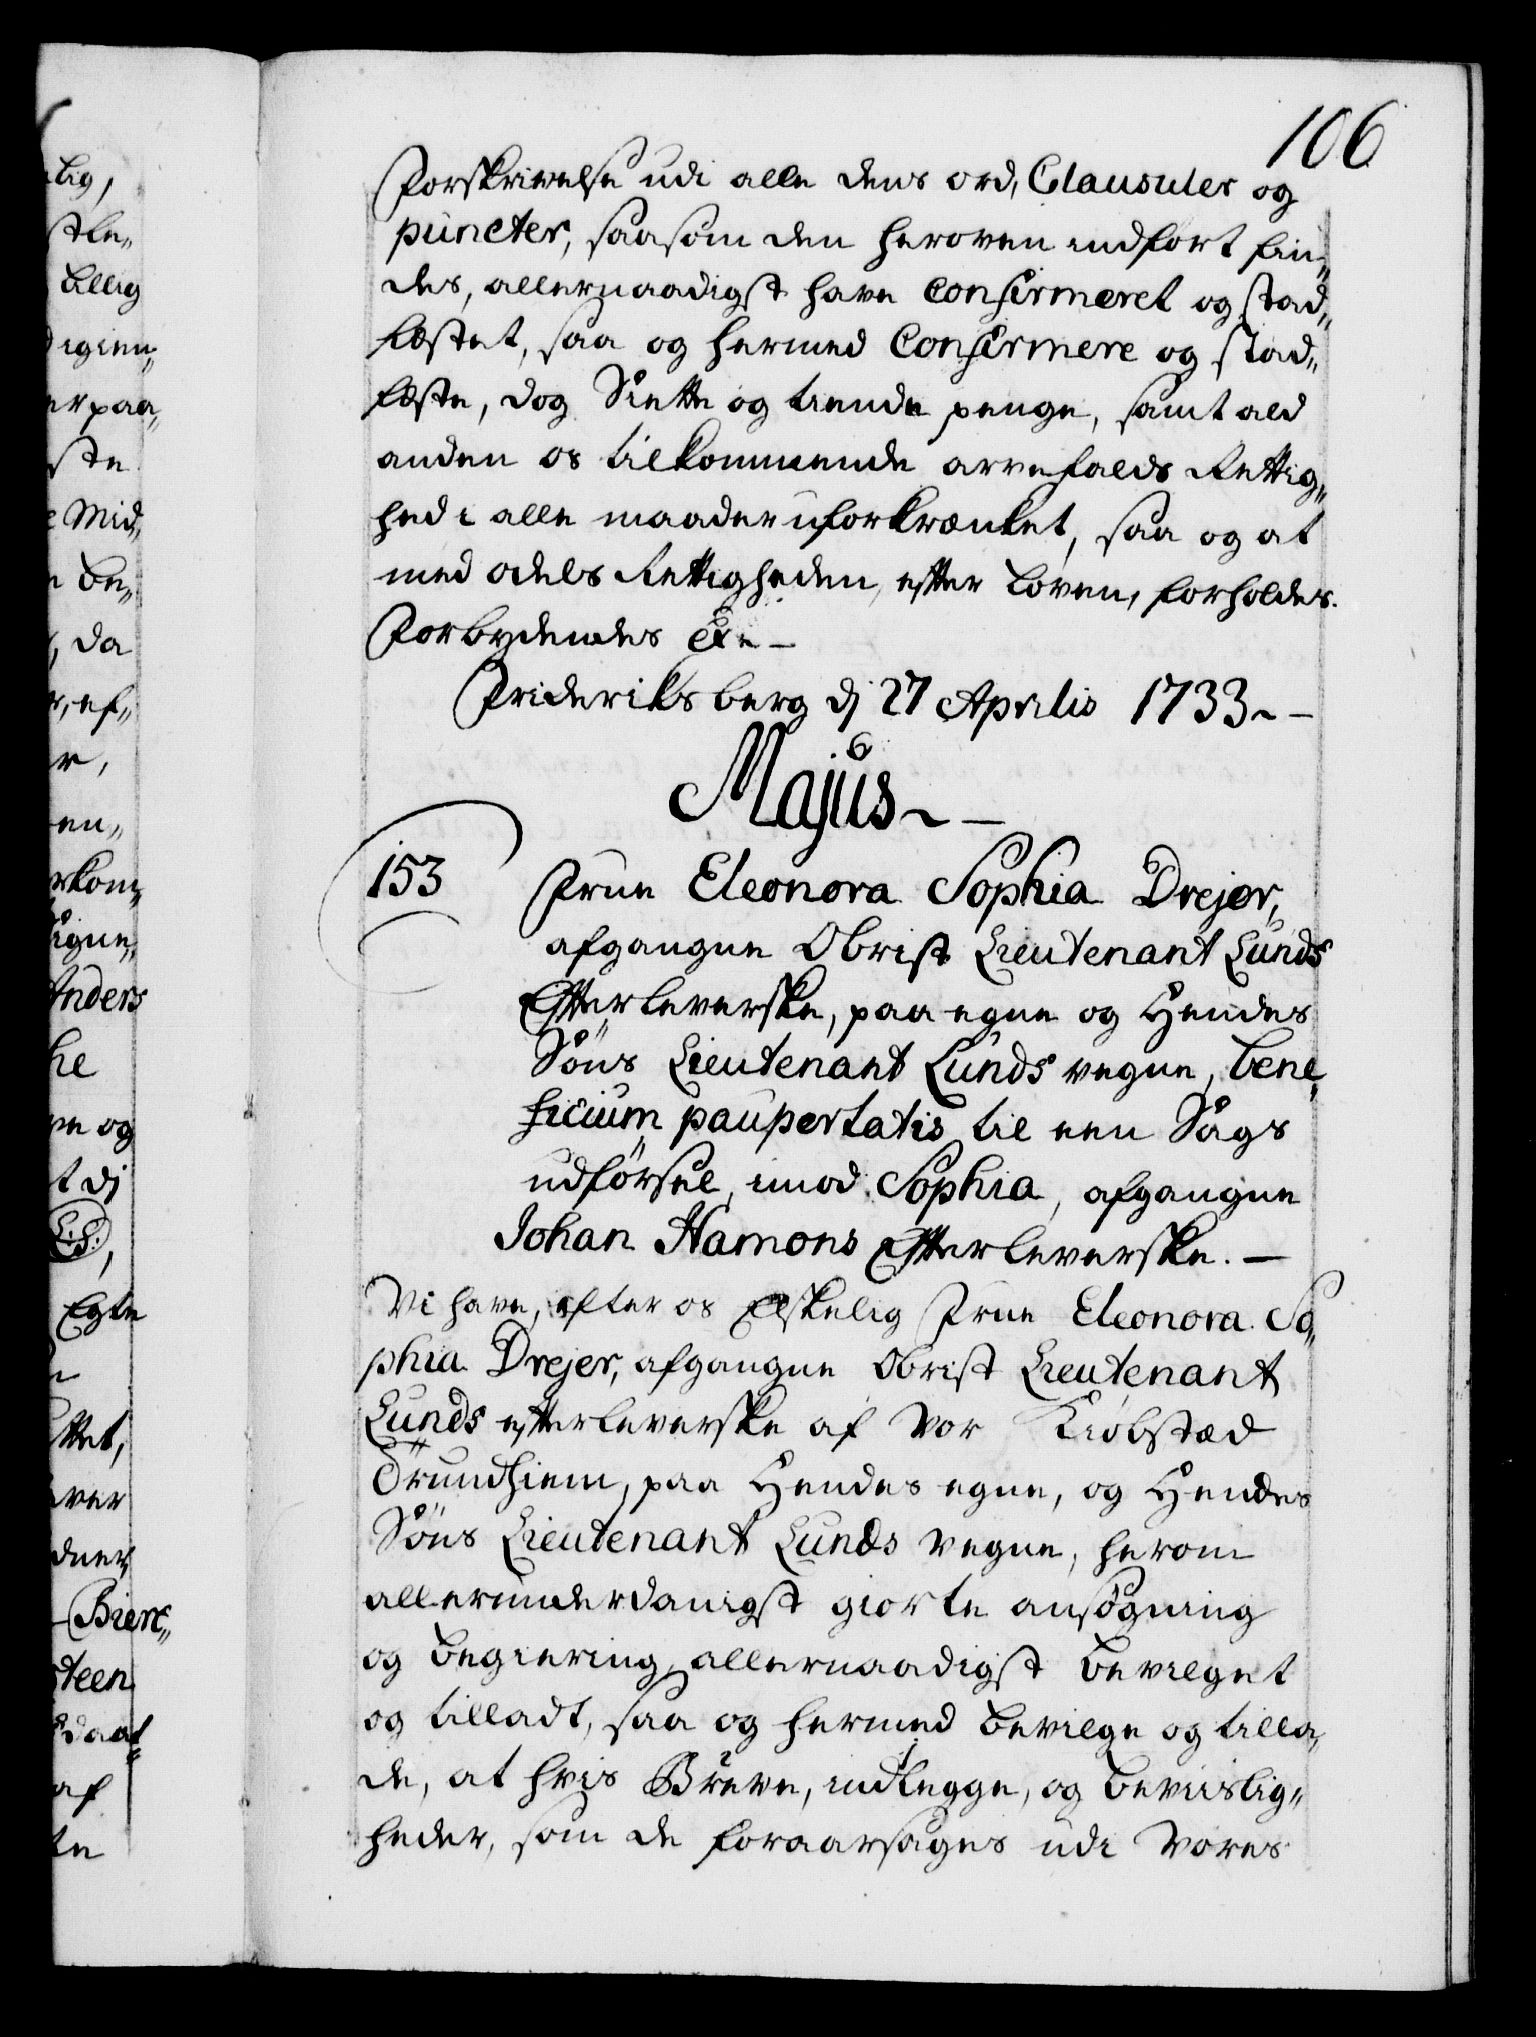 106
Forskrivelse udi alle dens ord, Clausuler og
puncter, saasom den heroven indført fin„
des, allernaadigst have Confirmeret og stad„
fæstet, saa og hermed Confirmere og stad„
fæste, dog Siette og tiende penge, samt ald
anden os tilkommende arvefalds Rettig„
hed i alle maader uforkrænket, saa og at
med odels Rettigheden, efter Loven, forholdes.
Forbydendes etc —
Frideriksberg dj 27 Aprilis 1733 —
Majus —
153
Frue Eleonora Sophia Drejer,
afgangne Obrist Lieutenant Lunds
Efterleverske, paa egne og Hendes
Søns Lieutenant Lunds vegne, bene„
ficium paupertatis til een Sags
udførsel, imod Sophia, afgangne
Johan Hamons Efterleverske. —
Vi have, efter os Elskelig Frue Eleonora So„
phia Drejer, afgangne Obrist Lieutenant
Lunds efterleverske af Vor Kiøbstæd
Trundhiem, paa Hendes egne, og Hendes
Søns Lieutenant Lunds vegne, herom
allerunderdanigst giorte ansøgning
og begiering, allernaadigst bevilget
og tilladt, saa og hermed bevilge og tilla„
de, at hvis Breve, indlegge, og beviislig„
heder, som de foraarsages udi Vores
tig,
stle„
billig
igien„
er paa„
ste
Mid„
be„
, da
r, ef„
r,
en„
rkom„
Anders
he
ve og
t dj
L.S.
Egte
ttet,
ver
dner
Biere„
steen
daat
af
te